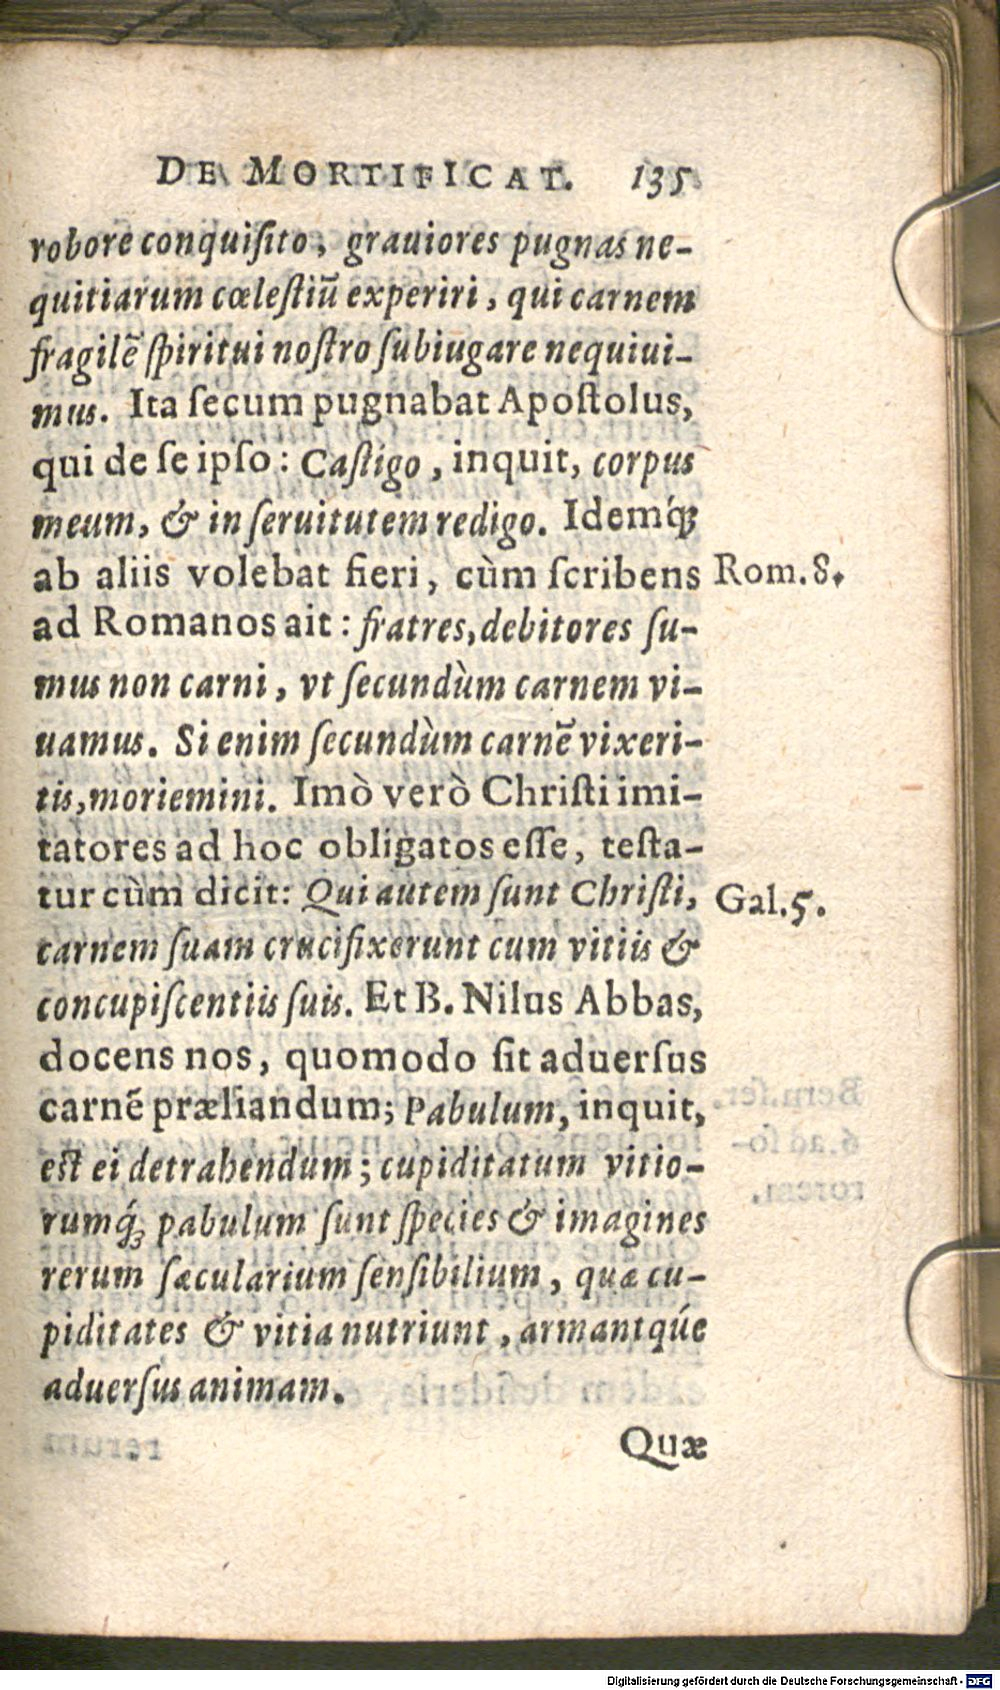 DE MORTIFICAT. 135
robore conquiſito, grauiores pugnas ne-
quitiarum cœleſtiũ experiri, qui carnem
fragilẽ ſpiritui noſtro ſubiugare nequiui-
mus. Ita ſecum pugnabat Apoſtolus,
qui de ſe ipſo: Caſtigo, inquit, corpus
meum, & in ſeruitutem redigo. Idemq́;
ab aliis volebat fieri, cùm ſcribens
Rom. 8.
ad Romanos ait: fratres, debitores ſu-
mus non carni, vt ſecundùm carnem vi-
uamus. Si enim ſecundùm carnẽ vixeri-
tis, moriemini. Imò verò Chriſti imi-
tatores ad hoc obligatos eſſe, teſta-
tur cùm dicit: Qui autem ſunt Chriſti,
Gal. 5.
carnem ſuam crucifixerunt cum vitiis &
concupiſcentiis ſuis. Et B. Nilus Abbas,
docens nos, quomodo ſit aduerſus
carnẽ præliandum; Pabulum, inquit,
eſt ei detrahendum; cupiditatum vitio-
rumq́; pabulum ſunt ſpecies & imagines
rerum ſæcularium ſenſibilium, quæ cu-
piditates & vitia nutriunt, armantqúe
aduerſus animam.
Quæ
Digitalisierung gefördert durch die Deutsche Forschungsgemeinschaft - DFG